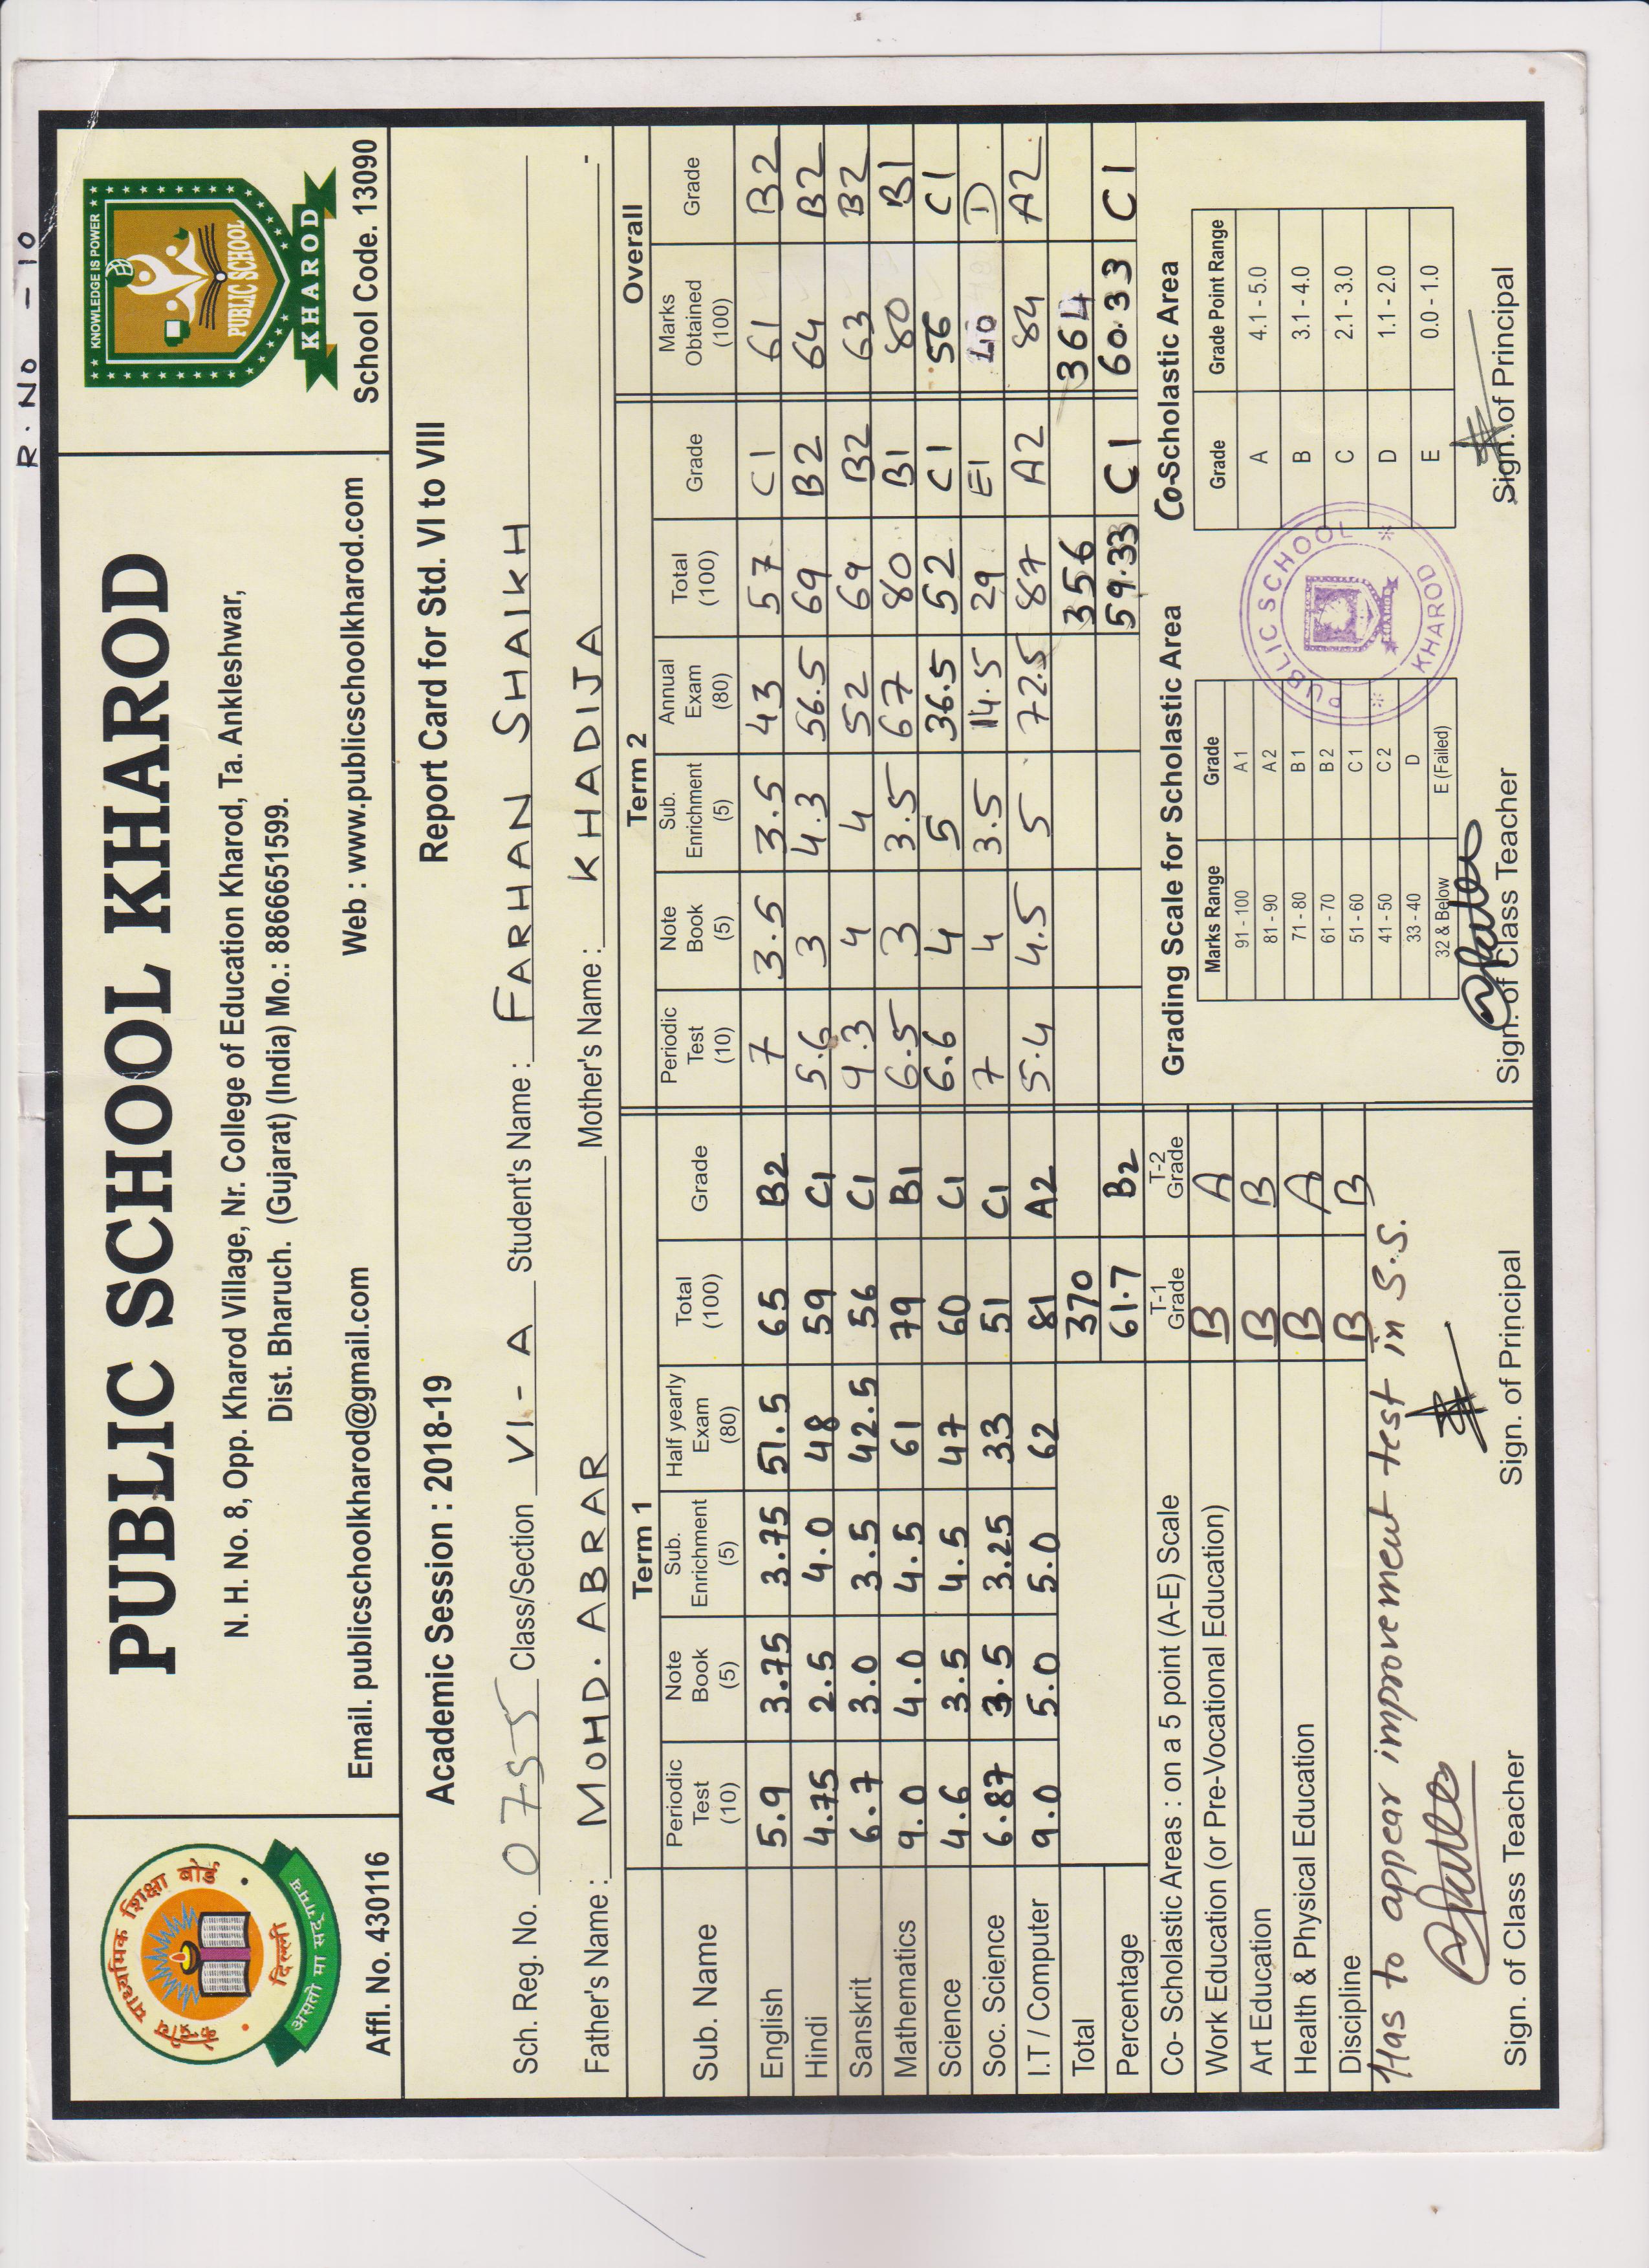 R. NO - 10
केन्द्रीय माध्यमिक शिक्षा बोर्ड
दिल्ली
असतो मा सद् गमय
Affl. No. 430116
PUBLIC SCHOOL KHAROD
N. H. No. 8, Opp. Kharod Village, Nr. College of Education Kharod, Ta. Ankleshwar,
Dist. Bharuch. (Gujarat) (India) Mo.: 8866651599.
Email. publicschoolkharod@gmail.com Web : www.publicschoolkharod.com
KNOWLEDGE IS POWER
PUBLIC SCHOOL
KHAROD
School Code. 13090
Academic Session : 2018-19 Report Card for Std. VI to VIII
Sch. Reg. No. 0755 Class/Section VI - A Student's Name : FARHAN SHAIKH
Father's Name : MOHD. ABRAR Mother's Name : KHADIJA
Term 1 Term 2 Overall
Sub. Name Periodic Test (10) Note Book (5) Sub. Enrichment (5) Half yearly Exam (80) Total (100) Grade Periodic Test (10) Note Book (5) Sub. Enrichment (5) Annual Exam (80) Total (100) Grade Marks Obtained (100) Grade
English 5.9 3.75 3.75 51.5 65 B2 7 3.5 3.5 43 57 C1 61 B2
Hindi 4.75 2.5 4.0 48 59 C1 5.6 3 4.3 56.5 69 B2 64 B2
Sanskrit 6.7 3.0 3.5 42.5 56 C1 9.3 4 4 52 69 B2 63 B2
Mathematics 9.0 4.0 4.5 61 79 B1 6.5 3 3.5 67 80 B1 80 B1
Science 4.6 3.5 4.5 47 60 C1 6.6 4 5 36.5 52 C1 56 C1
Soc. Science 6.87 3.5 3.25 33 51 C1 7 4 3.5 14.5 29 E1 40 D
I.T / Computer 9.0 5.0 5.0 62 81 A2 5.4 4.5 5 72.5 87 A2 84 A2
Total 370 356 364
Percentage 61.7 B2 59.33 C1 60.33 C1
Co- Scholastic Areas : on a 5 point (A-E) Scale T-1 Grade T-2 Grade
Work Education (or Pre-Vocational Education) B A
Art Education B B
Health & Physical Education B A
Discipline B B
Has to appear improvement test in S.S.
Sign. of Class Teacher Sign. of Principal
Grading Scale for Scholastic Area
Marks Range Grade
91 - 100 A 1
81 - 90 A 2
71 - 80 B 1
61 - 70 B 2
51 - 60 C 1
41 - 50 C 2
33 - 40 D
32 & Below E (Failed)
PUBLIC SCHOOL
KHAROD
Co-Scholastic Area
Grade Grade Point Range
A 4.1 - 5.0
B 3.1 - 4.0
C 2.1 - 3.0
D 1.1 - 2.0
E 0.0 - 1.0
Sign. of Class Teacher Sign. of Principal